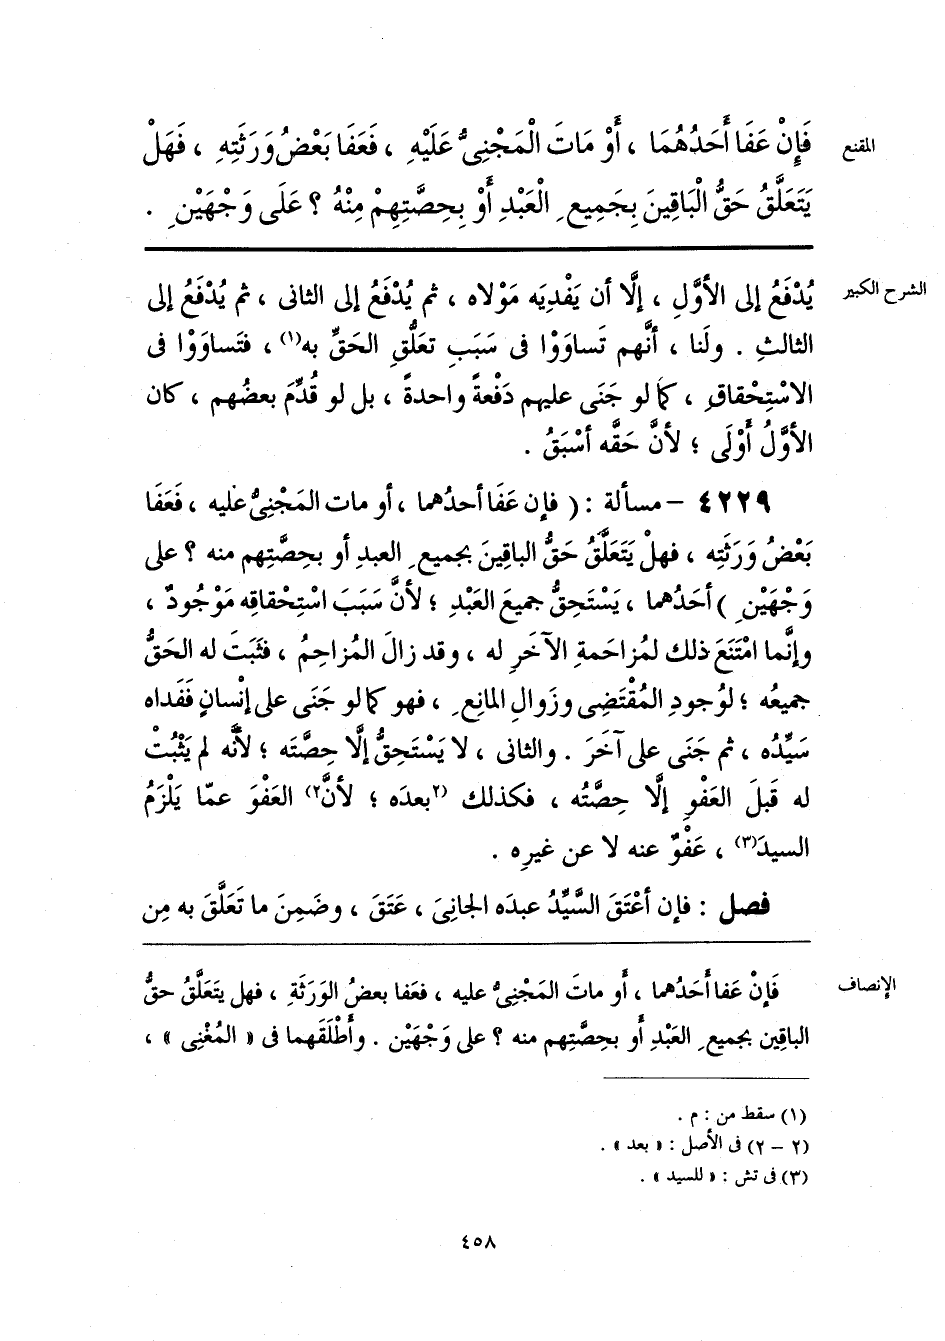 المقنع
فَإِنْ عَفَا أَحَدُهُمَا ، أَوْ مَاتَ الْمَجْنِىُّ عَلَيْهِ ، فَعَفَا بَعْضُ وَرَثَتِهِ ، فَهَلْ
يَتَعَلَّقُ حَقُّ الْبَاقِينَ بِجَمِيعِ الْعَبْدِ أَوْ بِحِصَّتِهِمْ مِنْهُ ؟ عَلَى وَجْهَيْنِ .
الشرح الكبير
يُدْفَعُ إلى الأوَّلِ ، إلَّا أن يَفْدِيَه مَوْلاه ، ثم يُدْفَعُ إلى الثانى ، ثم يُدْفَعُ إلى
الثالثِ . ولَنا ، أنَّهم تَساوَوْا فى سَبَبِ تعَلُّقِ الحَقِّ به(١) ، فتَساوَوْا فى
الاسْتِحْقاقِ ، كما لو جَنَى عليهم دَفْعةً واحدةً ، بل لو قُدِّمَ بعضُهم ، كان
الأوَّلُ أوْلَى ؛ لأنَّ حَقَّه أسْبَقُ .
٤٢٢٩ – مسألة : ( فإن عَفَا أحدُهما ، أو مات المَجْنِىُّ عليه ، فَعَفَا
بَعْضُ وَرَثَتِه ، فهلْ يَتَعَلَّقُ حَقُّ الباقينَ بجميعِ العبدِ أو بحِصَّتِهم منه ؟ على
وَجْهَيْنِ ) أحَدُهما ، يَسْتَحِقُّ جميعَ العَبْدِ ؛ لأنَّ سَبَبَ اسْتِحْقاقِه مَوْجُودٌ ،
وإنَّما امْتَنَعَ ذلك لمُزاحَمةِ الآخَرِ له ، وقد زالَ المُزاحِمُ ، فثَبَتَ له الحَقُّ
جميعُه ؛ لوُجودِ المُقْتَضِى وزَوالِ المانِعِ ، فهو كما لو جَنَى على إنْسانٍ فَفَداه
سَيِّدُه ، ثم جَنَى على آخَرَ . والثانى ، لا يَسْتَحِقُّ إلَّا حِصَّتَه ؛ لأنَّه لم يَثْبُتْ
له قبلَ العَفْوِ إلَّا حِصَّتُه ، فكذلك (٢بعدَه ؛ لأنَّ٢) العَفْوَ عمّا يَلْزَمُ
السيدَ(٣) ، عَفْوٌ عنه لا عن غيرِه .
فصل : فإن أعْتَقَ السَّيِّدُ عبدَه الجانِىَ ، عَتَقَ ، وضَمِنَ ما تَعَلَّقَ به مِن
الإنصاف
فَإنْ عَفا أحَدُهما ، أو ماتَ المَجْنِىُّ عليه ، فعَفا بعضُ الوَرَثَةِ ، فهل يتَعَلَّقُ حقُّ
الباقِين بجميعِ العَبْدِ أو بحِصَّتِهم منه ؟ على وَجْهَيْن . وأَطْلَقَهما فى « المُغْنِى » ،
(١) سقط من : م .
(٢ – ٢) فى الأصل : « بعد » .
(٣) فى تش : « للسيد » .
٤٥٨